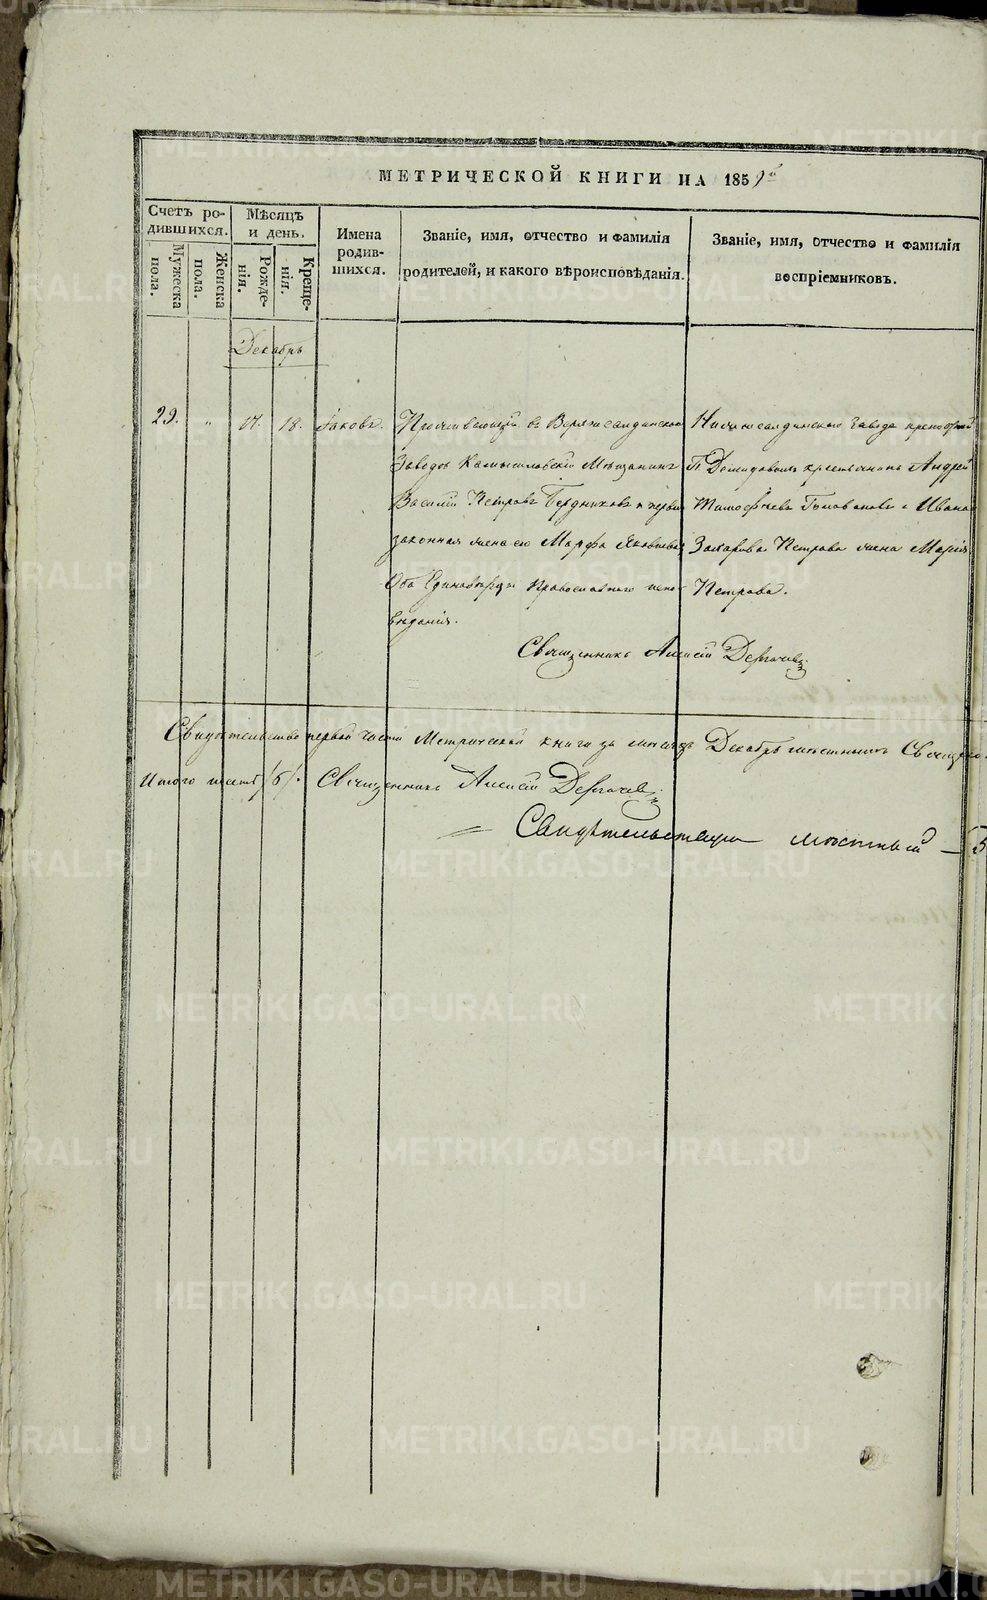 МЕТРИЧЕСКОЙ КНИГИ НА 1859й
Счетъ ро-
дившихся.
Мужеска
пола.
Женска
пола.
Мѣсяцъ
и день.
Рожде-
нія.
Креще-
нія.
Имена
родив-
шихся.
Званіе, имя, отчество и фамилія
родителей, и какого вѣроисповѣданія.
Званіе, имя, отчество и фамилія
воспріемниковъ.
Декабрь
29. „ 17. 18. Іаковъ.
Проживающій въ Верхнесалдинскомъ
Заводѣ Камышловскій Мѣщанинъ
Василій Петровъ Бердниковъ и первая
законная жена его Марфа Яковлева
Оба Единовѣрцы Православнаго испо-
вѣданія.
Нижнесалдинскаго Завода крепостной
Г. Демидовыхъ крестьянинъ Андрей
Тимофѣевъ и Ивана
Захарова Петрова жена Марія
Петрова.
Священникъ Алексій Дерячевъ
Свидѣтельство первой части Метрической книги за мѣсяцъ Декабрь мѣстнымъ
Итого шесть /6/. Священникъ Алексій Дерячевъ
Свидѣтельствовалъ мѣстный
METRIKI.GASO-URAL.RU